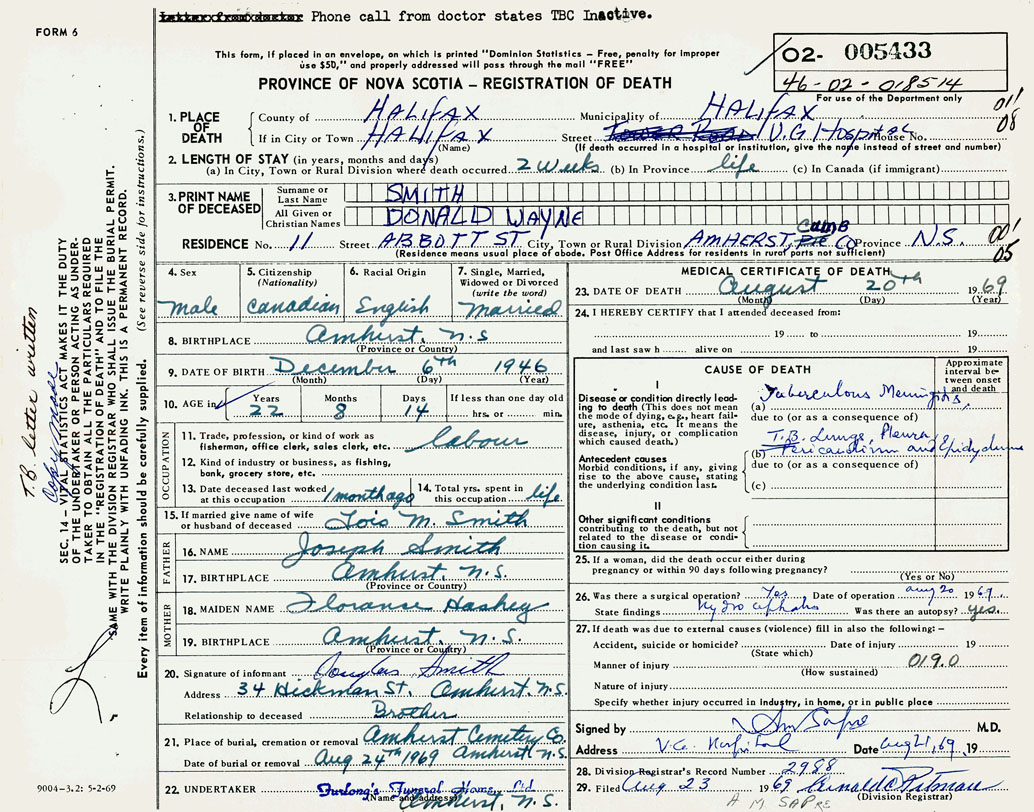 Letter from doctor Phone call from doctor states TBC Inactive.
FORM 6
This form, if placed in an envelope, on which is printed "Dominion Statistics – Free, penalty for improper
use $50," and properly addressed will pass through the mail "FREE"
PROVINCE OF NOVA SCOTIA – REGISTRATION OF DEATH
02- 005433
46-02-018514
For use of the Department only
011
08
1. PLACE OF DEATH
County of HALIFAX Municipality of HALIFAX
If in City or Town HALIFAX Street Tower Road V.G Hospital House No.
(Name) (If death occurred in a hospital or institution, give the name instead of street and number)
2. LENGTH OF STAY (in years, months and days)
(a) In City, Town or Rural Division where death occurred 2 Weeks (b) In Province life (c) In Canada (if immigrant)
3. PRINT NAME OF DECEASED
Surname or Last Name SMITH
All Given or Christian Names DONALD WAYNE
RESIDENCE No. 11 Street ABBOTT ST City, Town or Rural Division AMHERST, CUMB CO Province N.S.
(Residence means usual place of abode. Post Office Address for residents in rural parts not sufficient)
001
05
4. Sex Male
5. Citizenship (Nationality) Canadian
6. Racial Origin English
7. Single, Married, Widowed or Divorced (write the word) Married
8. BIRTHPLACE Amherst, N.S
(Province or Country)
9. DATE OF BIRTH December 6th 1946
(Month) (Day) (Year)
10. AGE in Years 22 Months 8 Days 14 If less than one day old hrs. or min.
OCCUPATION
11. Trade, profession, or kind of work as fisherman, office clerk, sales clerk, etc. labour
12. Kind of industry or business, as fishing, bank, grocery store, etc.
13. Date deceased last worked at this occupation 1 month ago 14. Total yrs. spent in this occupation life
15. If married give name of wife or husband of deceased Lois M. Smith
FATHER
16. NAME Joseph Smith
17. BIRTHPLACE Amherst, N.S.
(Province or Country)
MOTHER
18. MAIDEN NAME Floranse Haskey
19. BIRTHPLACE Amherst, N.S.
(Province or Country)
20. Signature of informant Douglas Smith
Address 34 Hickman St. Amherst. N.S.
Relationship to deceased Brother
21. Place of burial, cremation or removal Amherst Cemetery Co.
Date of burial or removal Aug 24th 1969 Amherst N.S.
22. UNDERTAKER Furlong's Funeral Home Ltd
(Name and address) Amherst, N.S.
MEDICAL CERTIFICATE OF DEATH
23. DATE OF DEATH August 20th 1969
(Month) (Day) (Year)
24. I HEREBY CERTIFY that I attended deceased from:
19 to 19
and last saw h alive on 19
CAUSE OF DEATH
Approximate interval between onset and death
I
Disease or condition directly leading to death (This does not mean the mode of dying, e.g., heart failure, asthenia, etc. It means the disease, injury, or complication which caused death.)
(a) Tuberculous Meningitis,
due to (or as a consequence of)
Antecedent causes
Morbid conditions, if any, giving rise to the above cause, stating the underlying condition last.
(b) T.B. Lungs, Pleura Pericardium and Epidydimus
due to (or as a consequence of)
(c)
II
Other significant conditions contributing to the death, but not related to the disease or condition causing it.
25. If a woman, did the death occur either during pregnancy or within 90 days following pregnancy?
(Yes or No)
26. Was there a surgical operation? Yes Date of operation aug 20 1969.
State findings Hydrocephalus Was there an autopsy? yes.
27. If death was due to external causes (violence) fill in also the following: –
Accident, suicide or homicide? Date of injury 19
(State which)
Manner of injury 019.0
(How sustained)
Nature of injury
Specify whether injury occurred in industry, in home, or in public place
Signed by AM Sapre M.D.
Address V.G. Hospital Date Aug 21, 69 19
28. Division Registrar's Record Number 2988
29. Filed Aug 23 1969
(Division Registrar)
A M SAPRE
9004-3.2: 5-2-69
T.B. letter written
Copy made
SEC. 14 – VITAL STATISTICS ACT MAKES IT THE DUTY
OF THE UNDERTAKER OR PERSON ACTING AS UNDER-
TAKER TO OBTAIN ALL THE PARTICULARS REQUIRED
IN THE "REGISTRATION OF DEATH" AND TO FILE THE
SAME WITH THE DIVISION REGISTRAR WHO SHALL ISSUE THE BURIAL PERMIT.
WRITE PLAINLY WITH UNFADING INK. THIS IS A PERMANENT RECORD.
Every item of information should be carefully supplied. (See reverse side for instructions.)